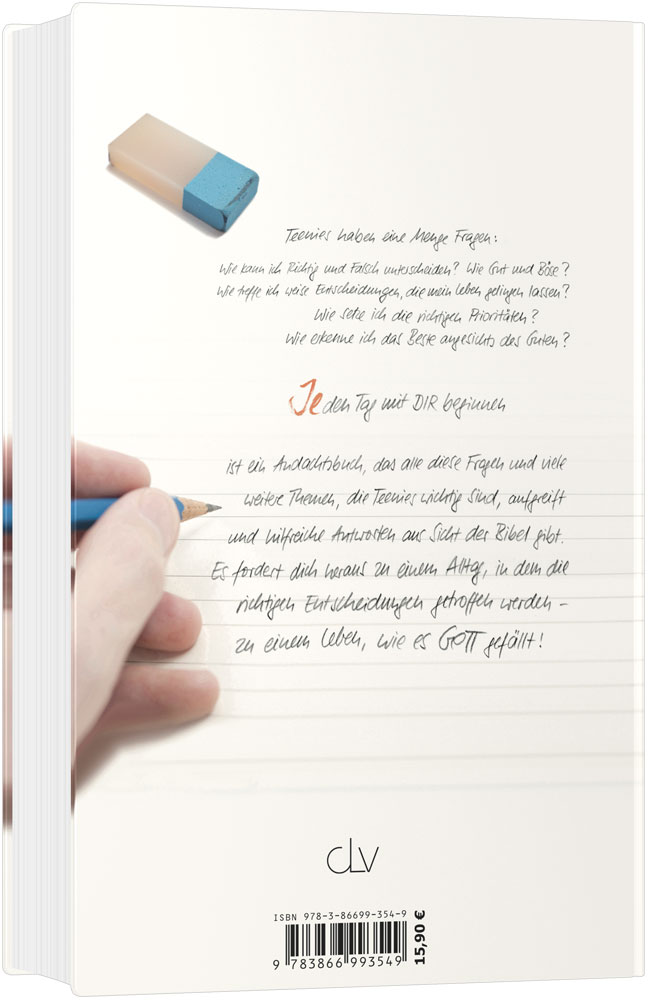 Teenies haben eine Menge Fragen:
Wie kann ich Richtig und Falsch unterscheiden? Wie Gut und Böse?
Wie treffe ich weise Entscheidungen, die mein Leben gelingen lassen?
Wie setze ich die richtigen Prioritäten?
Wie erkenne ich das Beste angesichts des Guten?
Jeden Tag mit DIR beginnen
ist ein Andachtsbuch, das alle diese Fragen und viele
weitere Themen, die Teenies wichtig sind, aufgreift
und hilfreiche Antworten aus Sicht der Bibel gibt.
Es fordert dich heraus zu einem Alltag, in dem die
richtigen Entscheidungen getroffen werden –
zu einem Leben, wie es GOTT gefällt!
CLV
ISBN 978-3-86699-354-9
9 783866 993549
15,90 €